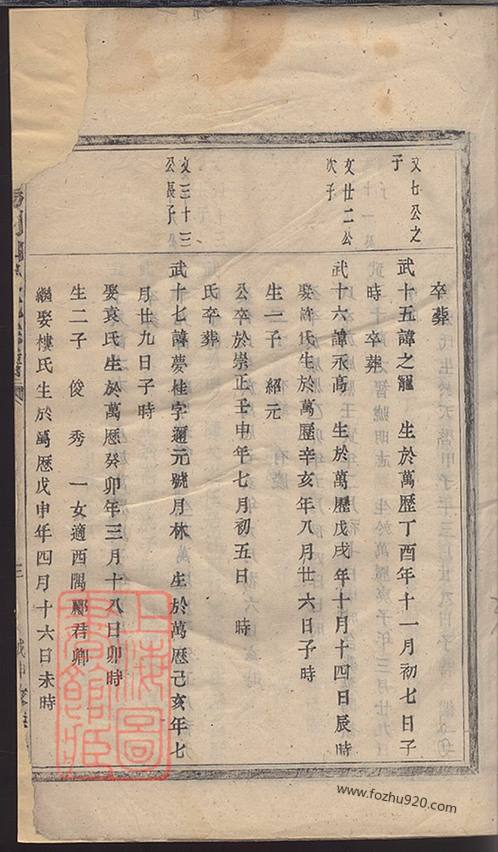 卒葬
文七公之
子
武十五諱之寵　生於萬歷丁酉年十一月初七日子
時　卒葬
文廿二公
次子
武十六諱永高　生於萬歷戊戌年十月十四日辰時
娶許氏生於萬歷辛亥年八月廿六日子時
生一子　紹元
公卒於崇正壬申年七月初五日　時
氏卒葬
文三十三
公長子
武十七諱夢桂字邇元號月林　生於萬歷己亥年七
月廿九日子時
娶袁氏生於萬歷癸卯年三月十八日卯時
生二子　俊　秀　一女適西閣酈君卿
繼娶樓氏生於萬歷戊申年四月十六日未時
三
上海圖書館藏
www.fozhu920.com